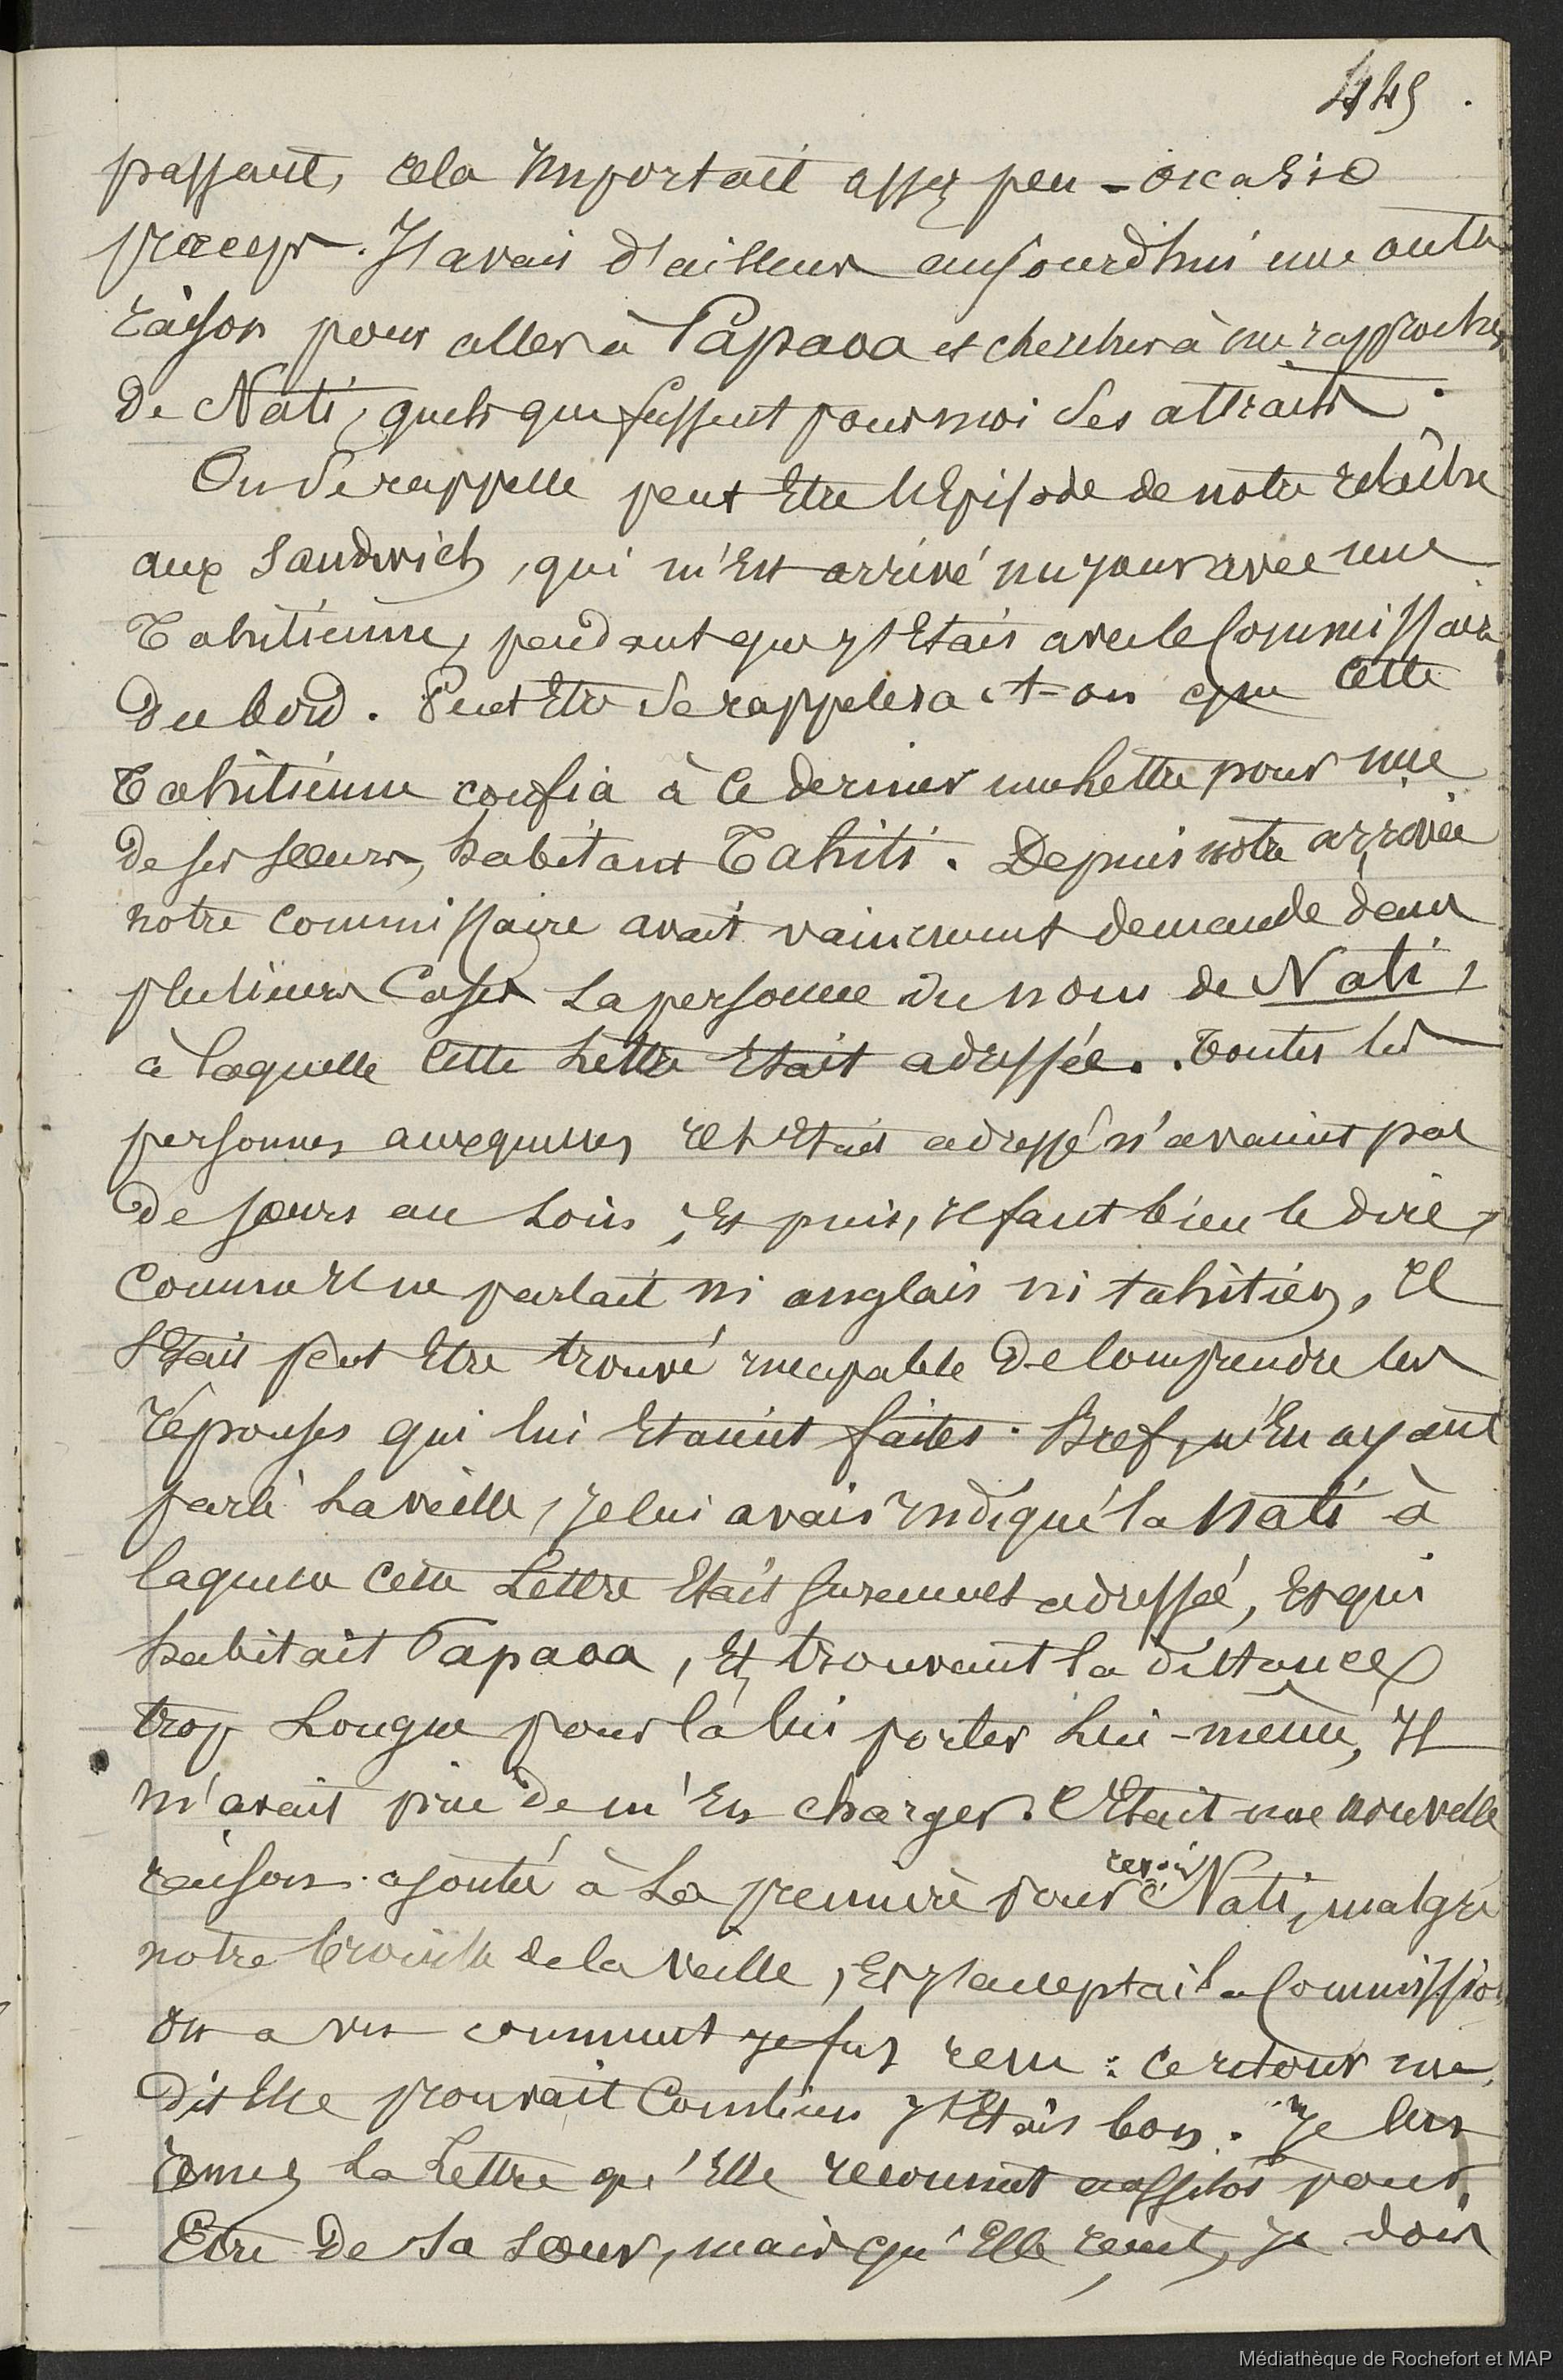 445.
passant, cela importait assez peu - occasio
præceps. J'avais d'ailleurs aujourd'hui une autre
raison pour aller à Papaoa et chercher à me rapprocher
de Nati, quels que fussent pour moi ses attraits.
On se rappelle peut être l'Episode de notre relâche
aux Sandwich, qui m'est arrivé un jour avec une
Tahitienne, pendant que j'Etais avec le Commissaire
du bord. Peut Etre se rappelera-t-on que cette
Tahitienne confia à ce dernier une lettre pour une
de ses sœurs, habitant Tahiti. Depuis notre arrivée
notre commissaire avait vainement demandé dans
plusieurs Cases la personne du nom de Nati,
à laquelle cette Lettre Etait adressée. Toutes les
personnes auxquelles il s'Etait adressé n'avaient pas
de sœurs au loin ; Et puis, il faut bien le dire,
comme il ne parlait ni anglais ni tahitien, il
s'Etait peut Etre trouvé incapable de comprendre les
réponses qui lui Etaient faites. Bref, m'En ayant
parlé la veille, je lui avais indiqué la Nati à
laquelle cette Lettre Etait surement adressée, Et qui
habitait Papaoa, Et, trouvant la distance
trop longue pour la lui porter lui-même, il
m'avait prié de m'En charger. C'Etait une nouvelle
raison ajoutée à la première pour revoir Nati, malgré
notre brouille de la veille, Et j'acceptai la Commission
On a vu comment je fus reçu : ce retour me
dit Elle prouvait Combien j'Etais bon. Je lui
remis la Lettre qu'Elle reconnut aussitôt pour
Etre de sa sœur, mais qu'Elle reçut, je dois
Médiathèque de Rochefort et MAP